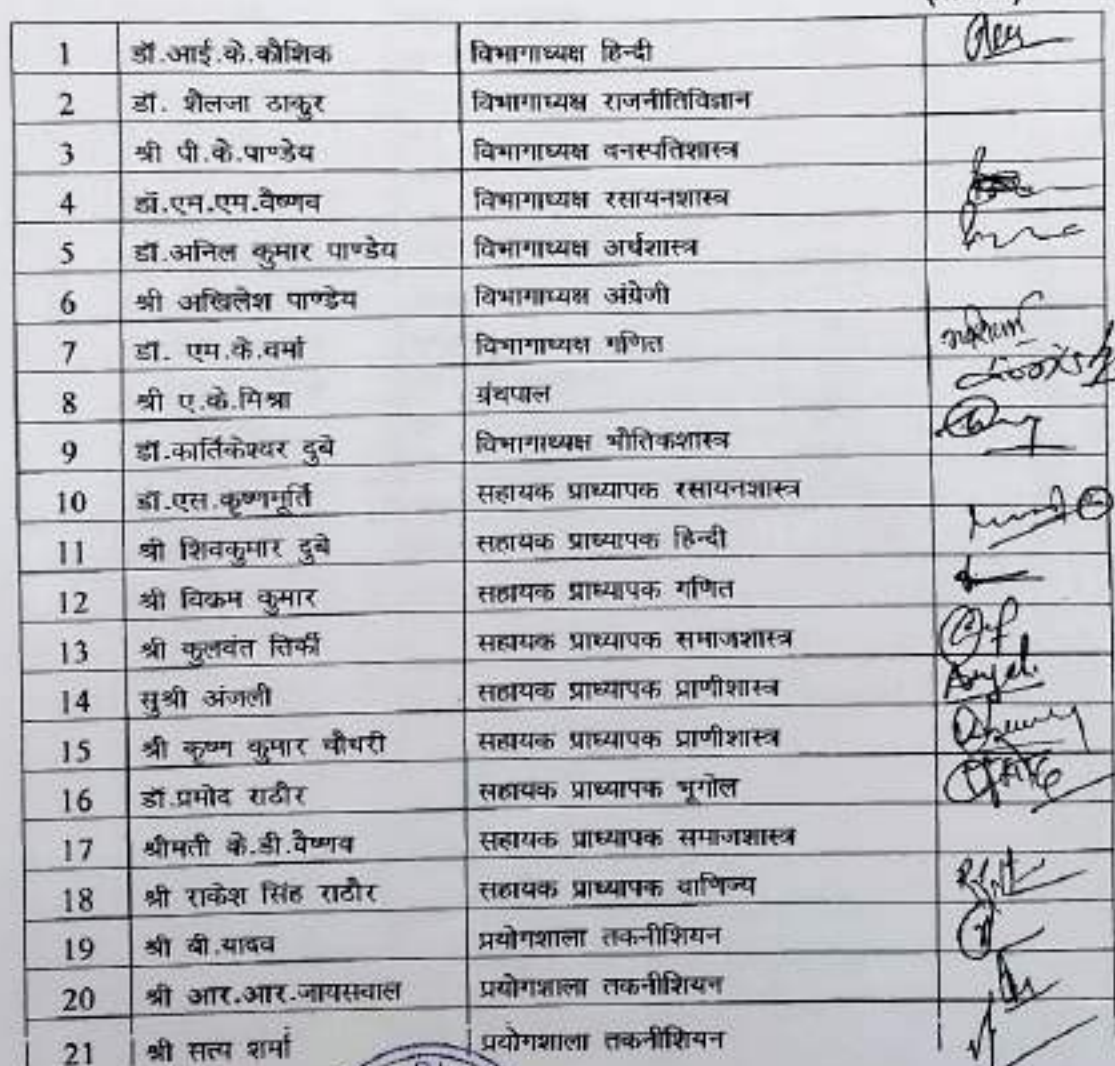 1 डॉ.आई.के.कौशिक विभागाध्यक्ष हिन्दी
2 डॉ. शैलजा ठाकुर विभागाध्यक्ष राजनीतिविज्ञान
3 श्री पी.के.पाण्डेय विभागाध्यक्ष वनस्पतिशास्त्र
4 डॉ.एम.एम.वैष्णव विभागाध्यक्ष रसायनशास्त्र
5 डॉ.अनिल कुमार पाण्डेय विभागाध्यक्ष अर्थशास्त्र
6 श्री अखिलेश पाण्डेय विभागाध्यक्ष अंग्रेजी
7 डॉ. एम.के.वर्मा विभागाध्यक्ष गणित
8 श्री ए.के.मिश्रा ग्रंथपाल
9 डॉ.कार्तिकेश्वर दुबे विभागाध्यक्ष भौतिकशास्त्र
10 डॉ.एस.कृष्णमूर्ति सहायक प्राध्यापक रसायनशास्त्र
11 श्री शिवकुमार दुबे सहायक प्राध्यापक हिन्दी
12 श्री विकम कुमार सहायक प्राध्यापक गणित
13 श्री कुलवंत तिर्की सहायक प्राध्यापक समाजशास्त्र
14 सुश्री अंजली सहायक प्राध्यापक प्राणीशास्त्र
15 श्री कृष्ण कुमार चौधरी सहायक प्राध्यापक प्राणीशास्त्र
16 डॉ.प्रमोद राठौर सहायक प्राध्यापक भूगोल
17 श्रीमती के.डी.वैष्णव सहायक प्राध्यापक समाजशास्त्र
18 श्री राकेश सिंह राठौर सहायक प्राध्यापक वाणिज्य
19 श्री बी.यादव प्रयोगशाला तकनीशियन
20 श्री आर.आर.जायसवाल प्रयोगशाला तकनीशियन
21 श्री सत्य शर्मा प्रयोगशाला तकनीशियन